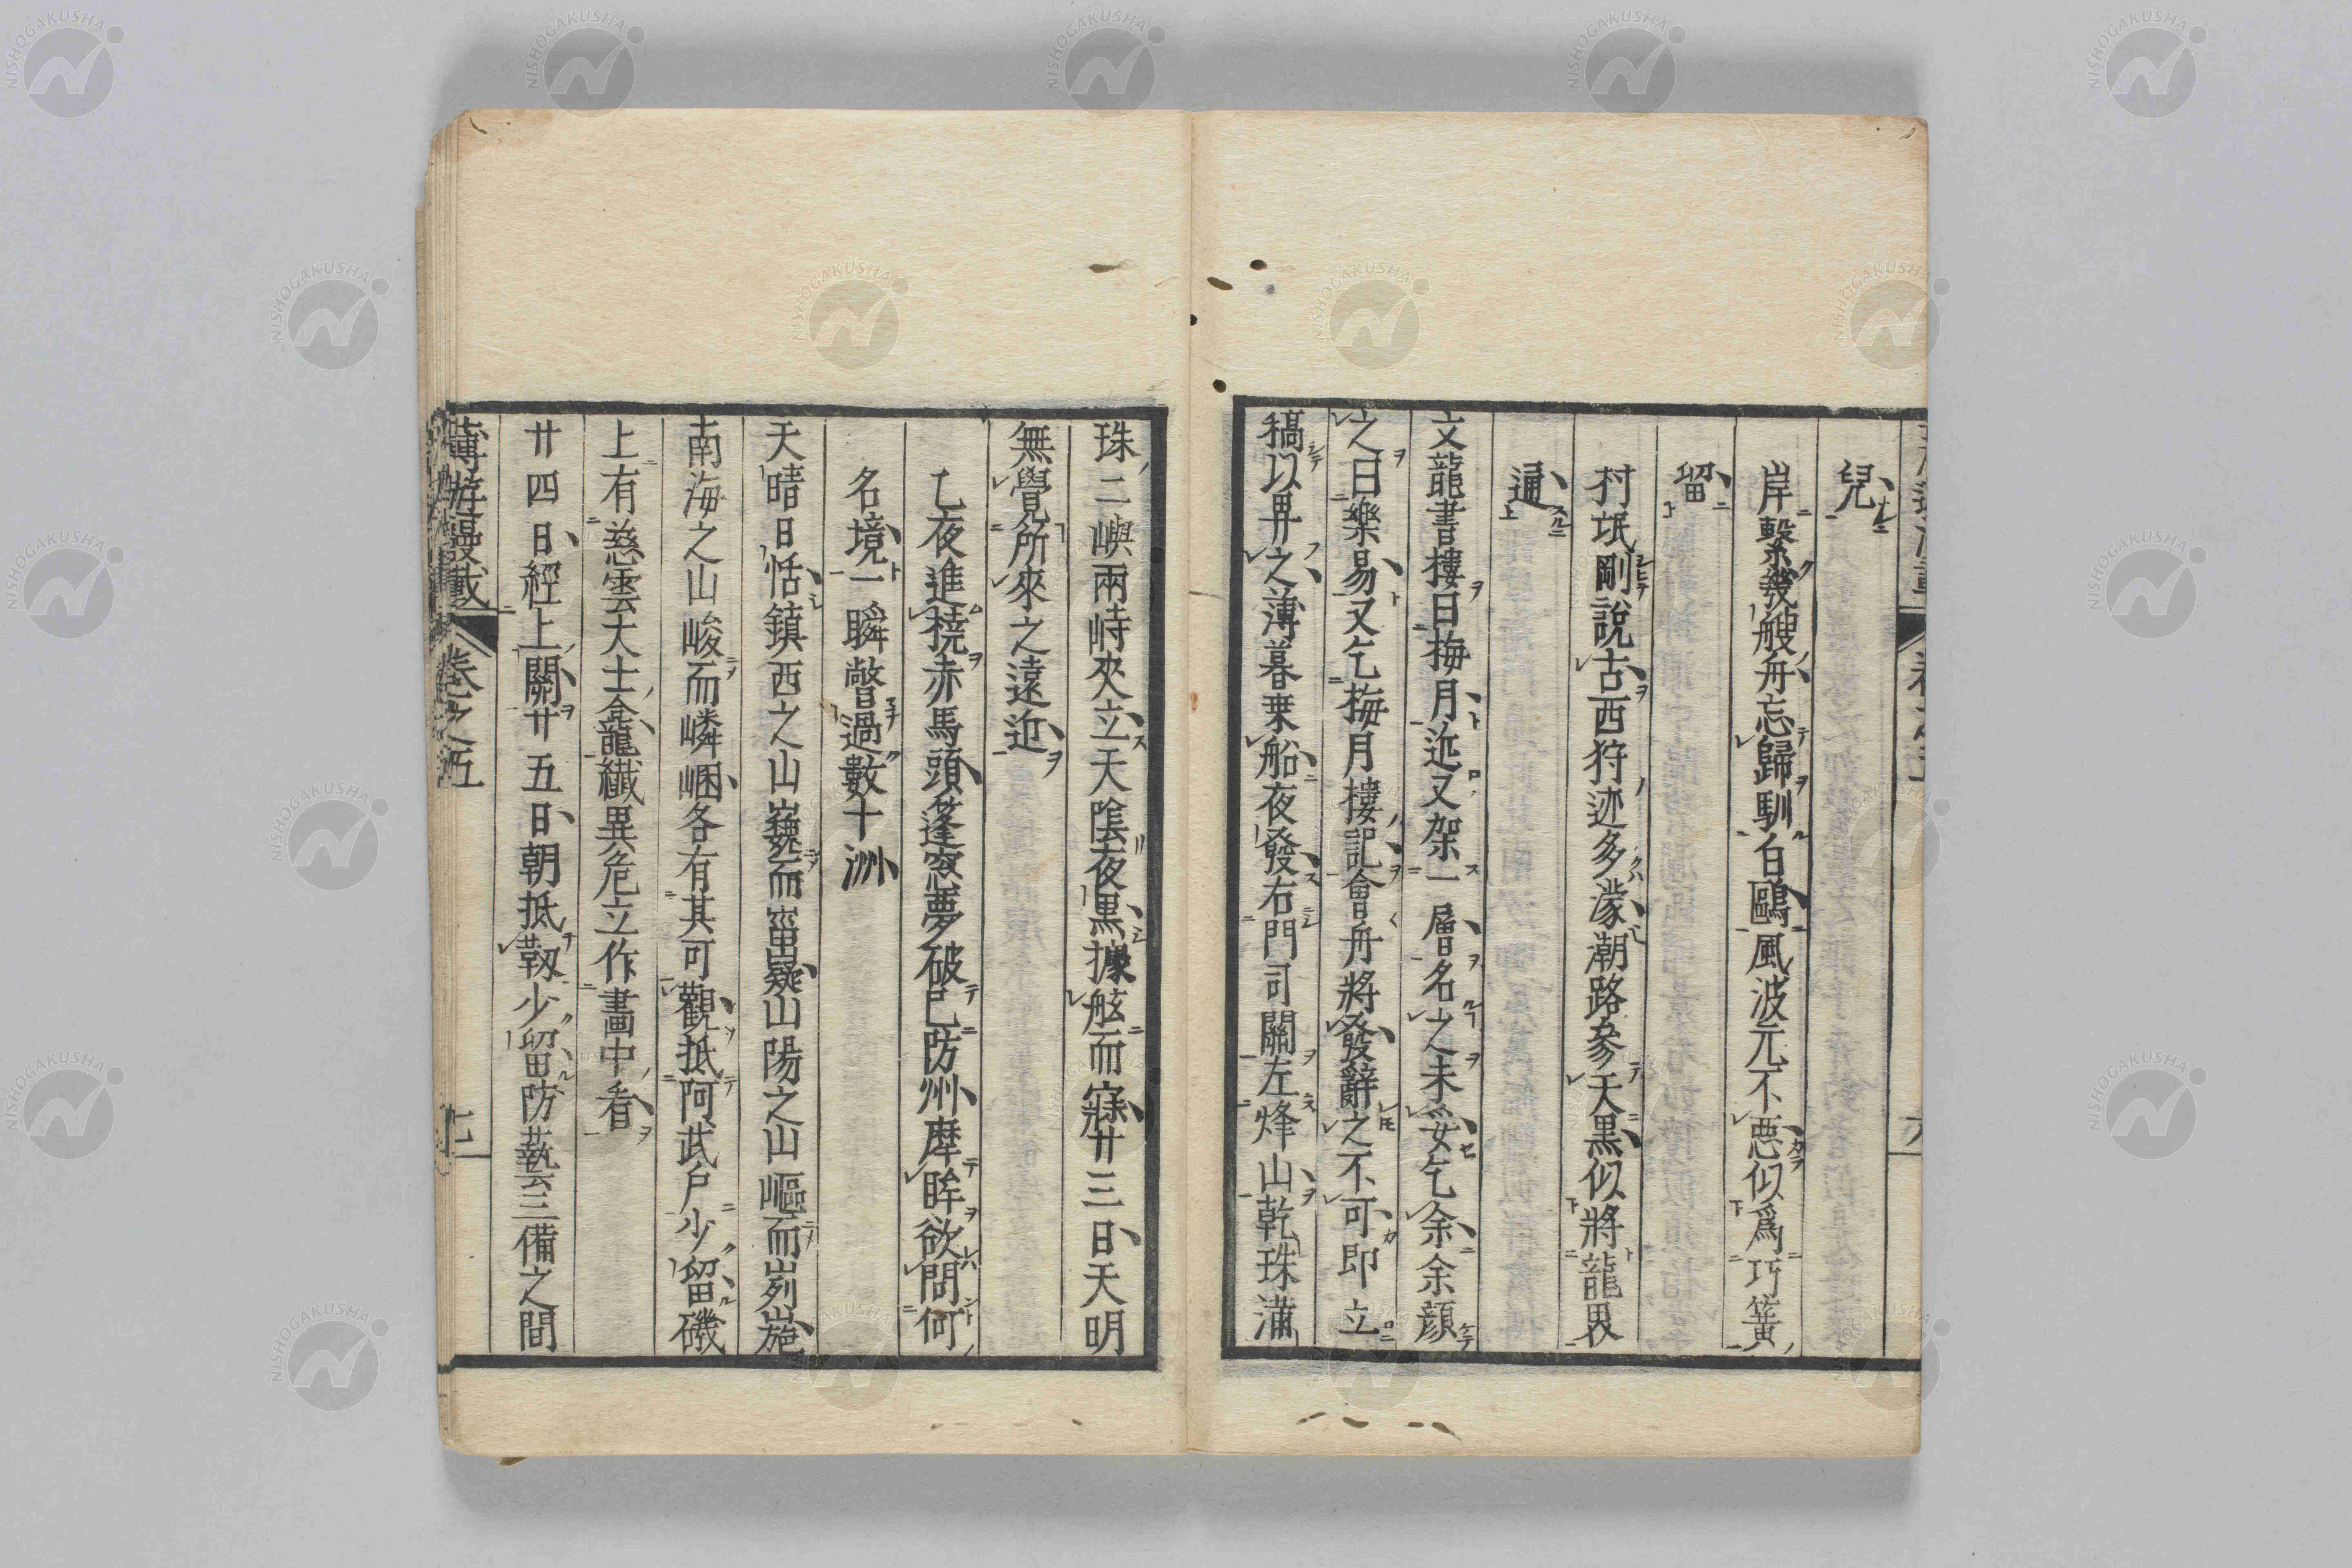 兒
岸繫幾艘舟忘歸馴白鷗風波元不惡似爲巧簧
留
村氓剛說古西狩迹多濛潮路參天黑似將龍畏
通
文龍書樓曰梅月近又架一層名之未妥乞余余顏
之曰樂易又乞梅月樓記會舟將發辭之不可即立
稿以畀之薄暮乗船夜發右門司關左烽山乾珠滿
珠二嶼兩峙夾立天陰夜黑據舷而寐廿三日天明
無覺所來之遠近
乙夜進橈赤馬頭篷窓夢破已防州摩眸欲問何
名境一瞬瞥過數十洲
天晴日恬鎮西之山巍而㟪嶷山陽之山嶇而峛崺
南海之山峻而嶙峒各有其可觀抵阿武戸少留磯
上有慈雲大士龕龍纖異危立作畫中看
廿四日經上關廿五日朝抵靱少留防藝三備之間
薄遊漫載 卷之五 七
NISHOGAKUSHA